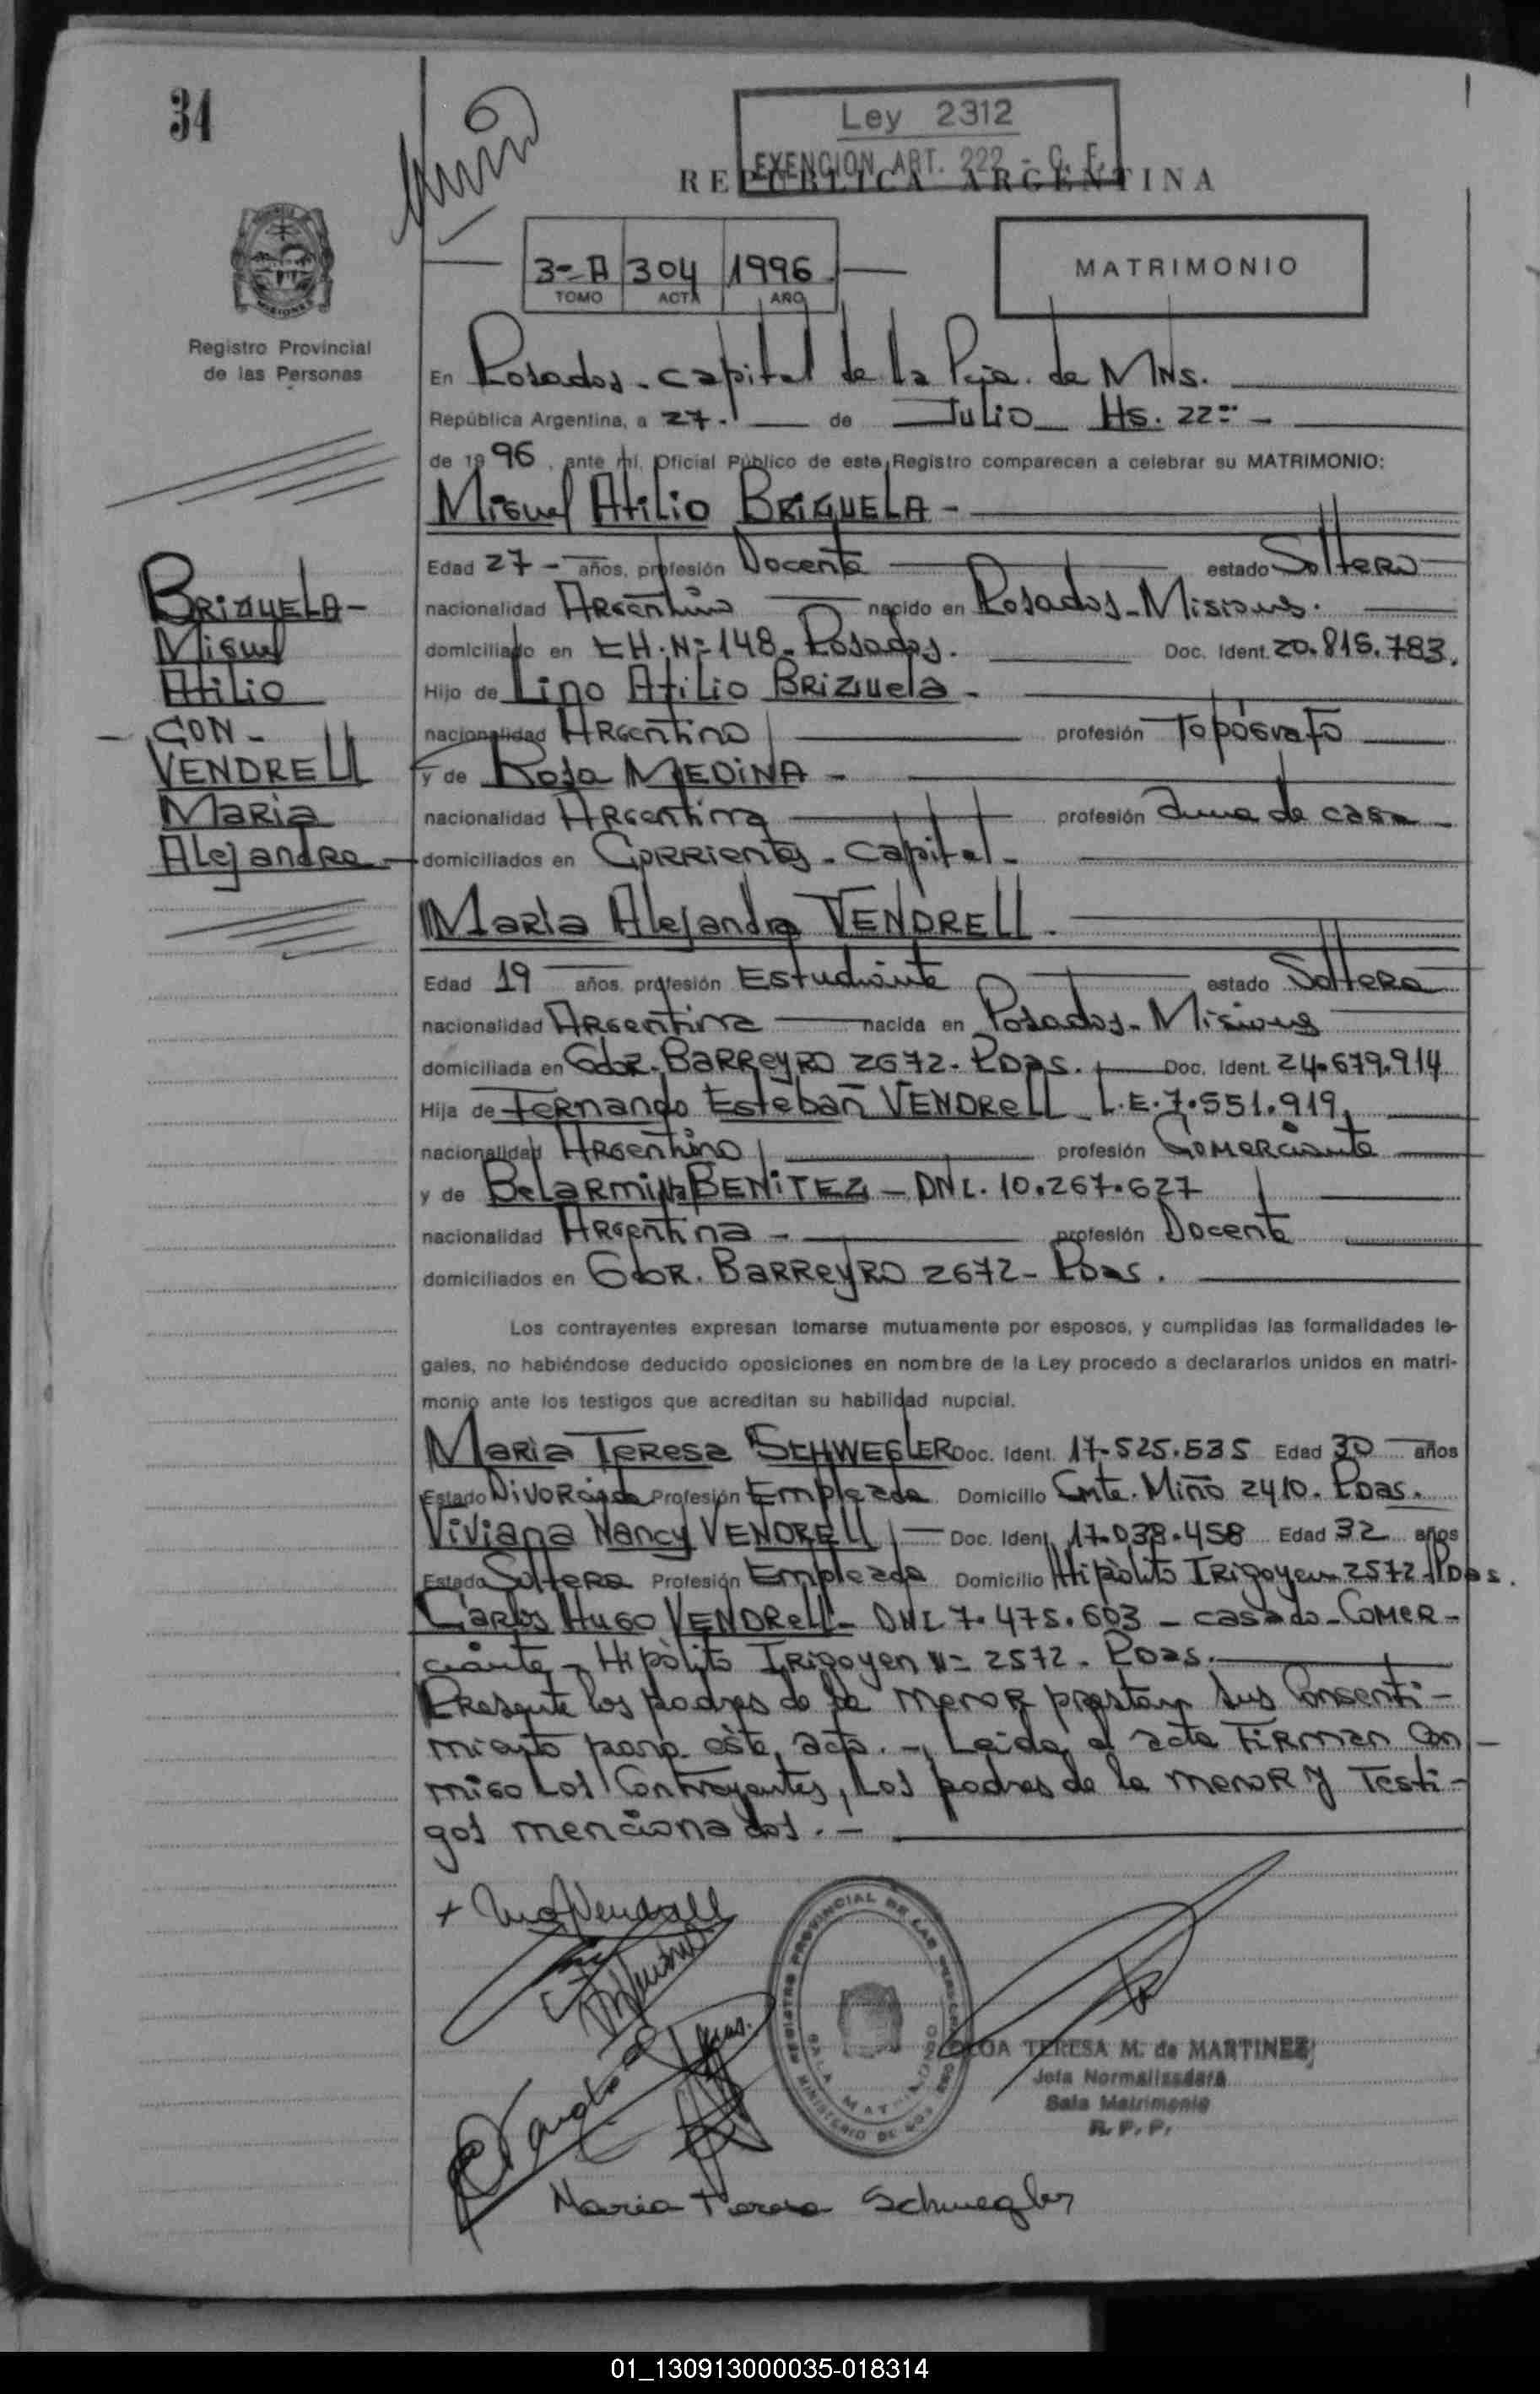 34
Ley 2312
EXENCION ART. 222 - C. F.
REPUBLICA ARGENTINA
3-A 304 1996
TOMO ACTA AÑO
MATRIMONIO
Registro Provincial
de las Personas
En Posadas - capital de la Pcia. de MNS.
República Argentina, a 27.- de Julio Hs. 22
de 1996, ante mí, Oficial Público de este Registro comparecen a celebrar su MATRIMONIO:
Miguel Atilio BRIZUELA -
Edad 27 - años, profesión Docente estado Soltero
nacionalidad Argentino nacido en Posadas - Misiones.
domiciliado en CH. Nº 148 - Posadas. Doc. Ident. 20.815.783.
Hijo de Lino Atilio Brizuela -
nacionalidad Argentino profesión Topógrafo
y de Rosa MEDINA -
nacionalidad Argentina profesión ama de casa
domiciliados en Corrientes - Capital -
BRIZUELA -
Miguel
Atilio
- CON -
VENDRELL
Maria
Alejandra
Maria Alejandra VENDRELL.
Edad 19 años. profesión Estudiante estado Soltera
nacionalidad Argentina nacida en Posadas - Misiones
domiciliada en Gdor. Barreyro 2672 - Pdas. Doc. Ident. 24.679.914
Hija de Fernando Esteban VENDRELL L.E. 7.551.919,
nacionalidad Argentino profesión Comerciante
y de Belarmina BENITEZ - DNI. 10.267.627
nacionalidad Argentina - profesión Docente
domiciliados en Gdor. Barreyro 2672 - Pdas.
Los contrayentes expresan tomarse mutuamente por esposos, y cumplidas las formalidades le-
gales, no habiéndose deducido oposiciones en nombre de la Ley procedo a declararlos unidos en matri-
monio ante los testigos que acreditan su habilidad nupcial.
Maria Teresa SCHWEGLER Doc. Ident. 17.525.535 Edad 30 años
Estado Divorciada Profesión Empleada Domicilio Cnte. Miño 2410. Pdas.
Viviana Nancy VENDRELL Doc. Ident. 17.038.458 Edad 32 años
Estado Soltera Profesión Empleada Domicilio Hipòlito Irigoyen 2572 Pdas.
Carlos Hugo VENDRELL - DNI 7.475.603 - casado - Comer-
ciante - Hipòlito Irigoyen Nº 2572 - Pdas.
Presente los padres de la menor prestan sus Consenti-
miento para este acto. - Leida el acta Firman Con
migo Los Contrayentes, Los padres de la menor y Testi-
gos mencionados. -
REGISTRO PROVINCIAL DE LAS PERSONAS
SALA MATRIMONIO
MINISTERIO DE GOB
OLGA TERESA M. de MARTINEZ
Jefa Normalizadora
Sala Matrimonio
R. P. P.
Maria Teresa Schwegler
01_130913000035-018314